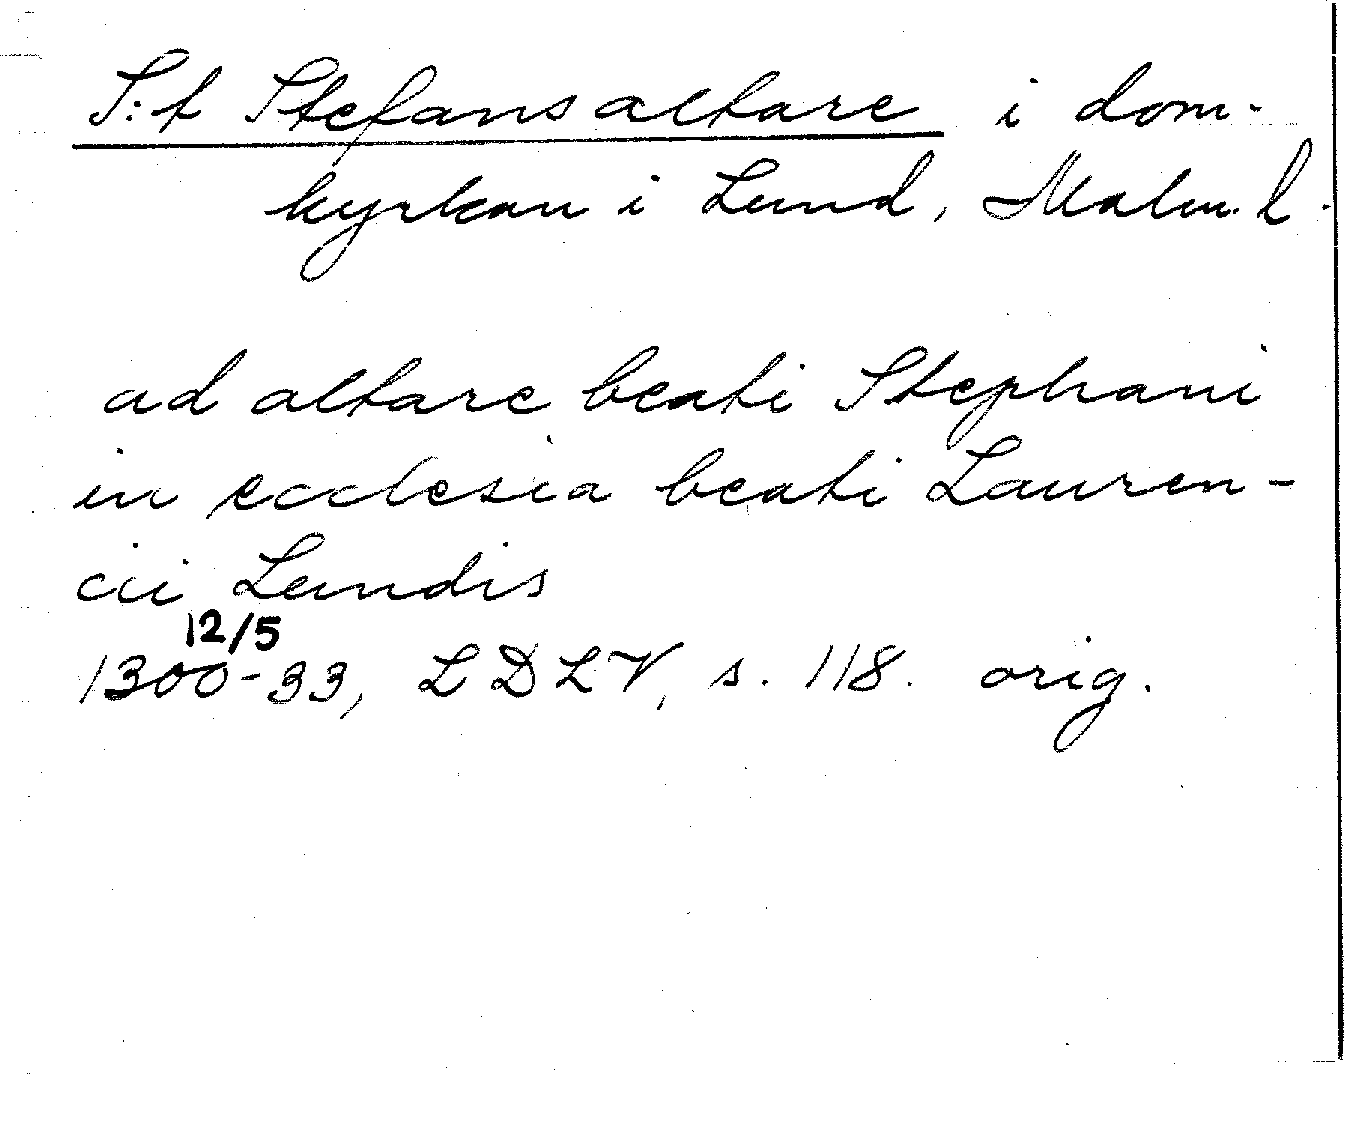 S:t Stefans altare i dom-
kyrkan i Lund, Malm. l.
ad altare beati Stephani
in ecclesia beati Lauren-
cii Lundis
12/5
1300-33, LDLV, s. 118. orig.